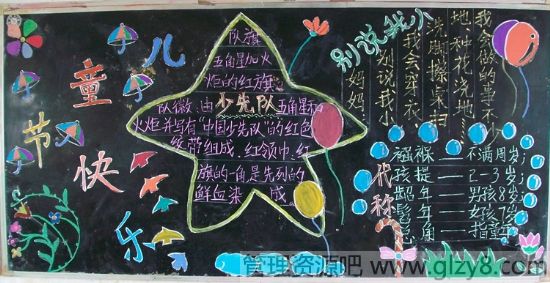 儿童节快乐
队旗
五角星加火
炬的红旗。
队徽:由少先队五角星和
火炬并写有"中国少先队"的红色
绶带组成,红领巾:红
旗的一角是先烈的
鲜血染成
别说我小
妈妈
别说我小
我会穿衣、
洗脚擦桌扫
地、种花洗地…
我会做的事不少
代称
襁褓——不满周岁;
孩提——2-3岁;
龆年——男孩8岁
髫年——女孩7岁
总角——指童
管理资源吧 www.glzy8.com